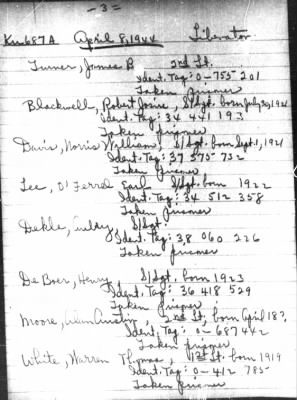 - 3 -
Ku 687 A April 8, 1944 Liberator
Turner, James B 2nd Lt.
Ident. Tag: O-755 201
Taken prisoner
Blackwell, Robert S/Sgt. born July
Ident. Tag: 34 441 193
Taken prisoner
Davis, Norris Williams, S/Sgt. born Sept. 1, 1921
Ident. Tag: 37 575 732
Taken prisoner
Lee, O'Ferrel Earl S/Sgt. born 1922
Ident. Tag: 34 512 358
Taken prisoner
Dekle, S/Sgt.
Ident. Tag: 38 060 226
Taken prisoner
De Boer, Henry S/Sgt. born 1923
Ident. Tag: 36 418 529
Taken prisoner
Moore, Austin 2nd Lt, born April 18
Ident. Tag: O-687442
Taken prisoner
White, Warren Thomas, 1st Lt. born 1919
Ident. Tag: O-412 785
Taken prisoner